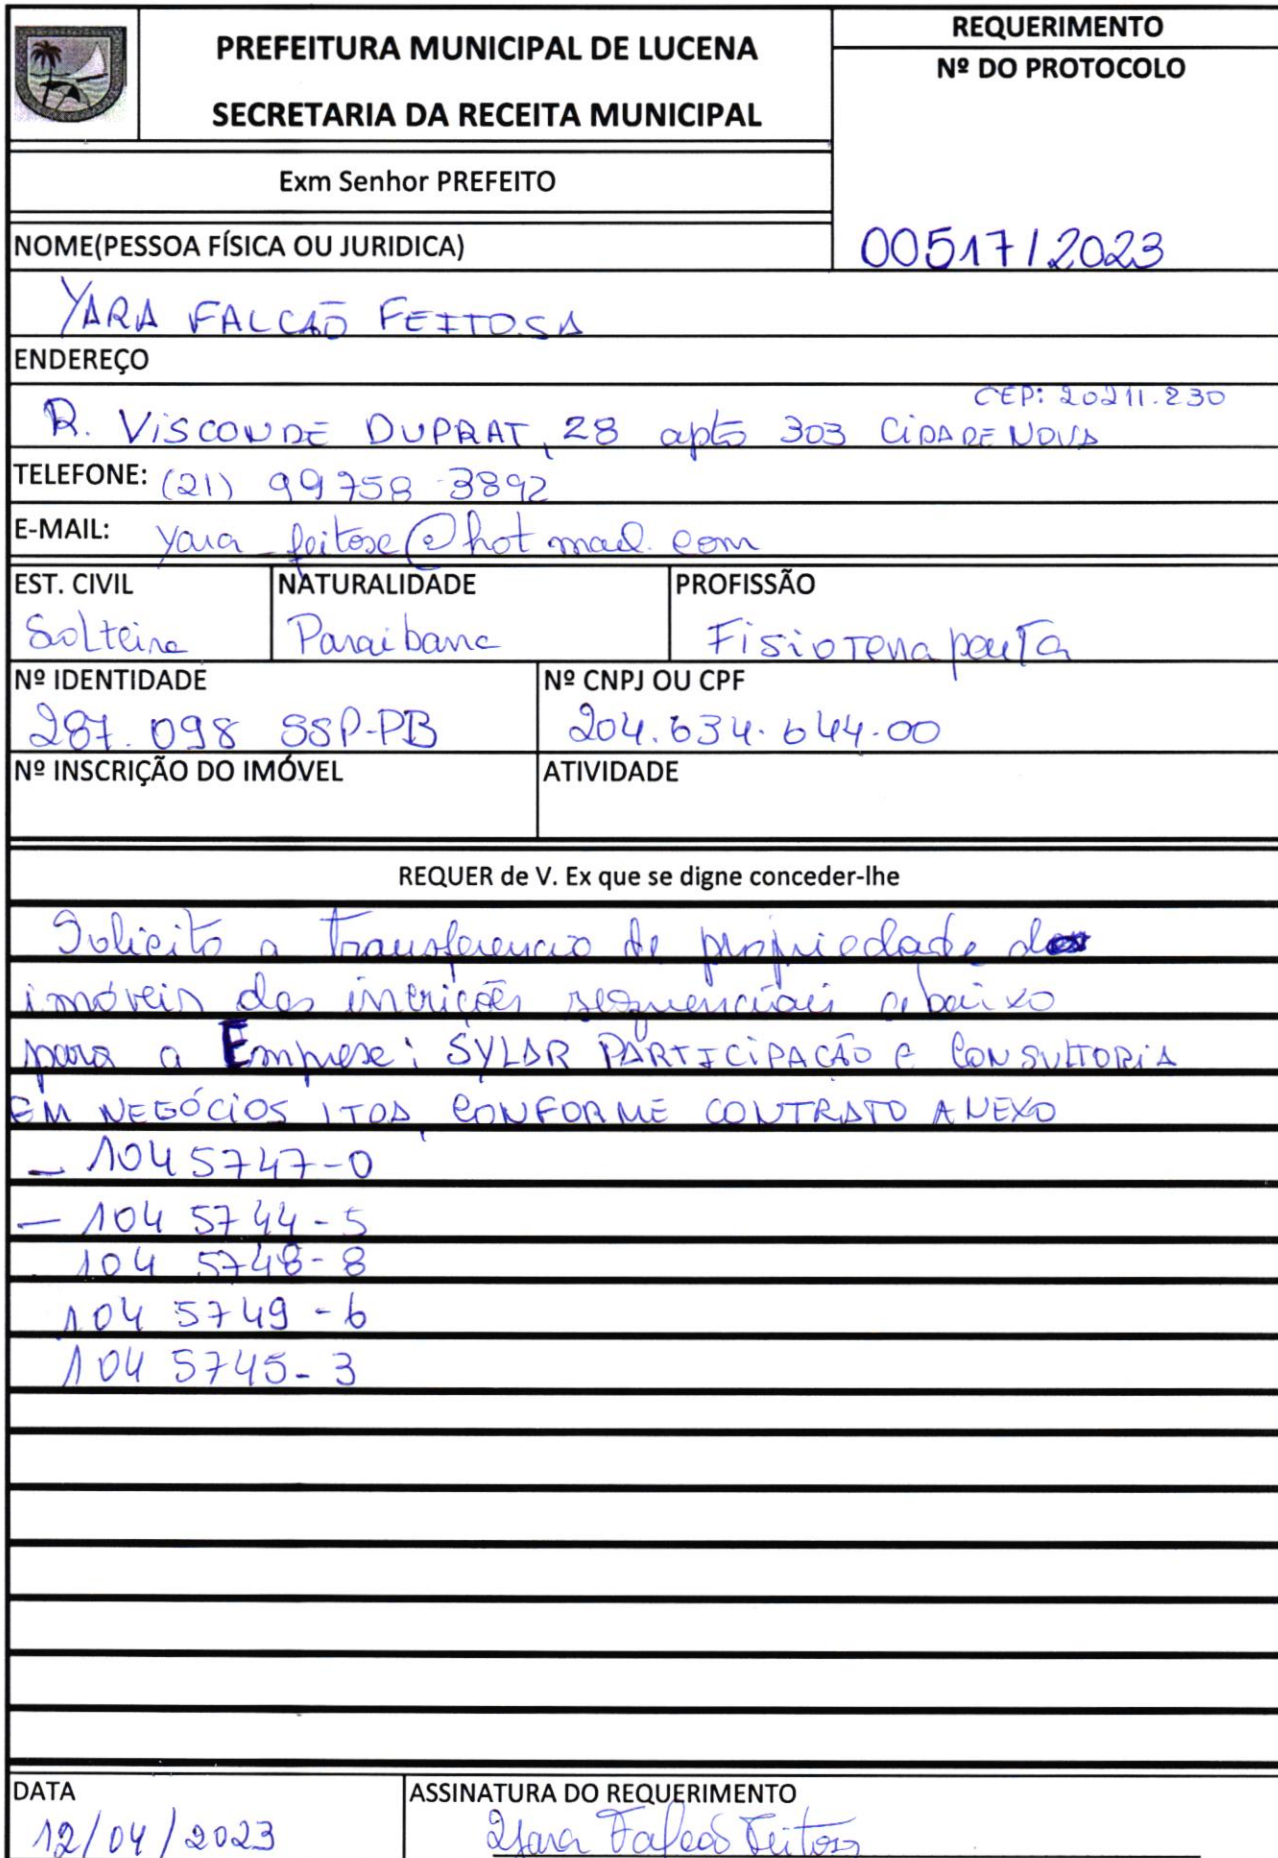 PREFEITURA MUNICIPAL DE LUCENA
SECRETARIA DA RECEITA MUNICIPAL
REQUERIMENTO
Nº DO PROTOCOLO
00517/2023
Exm Senhor PREFEITO
NOME(PESSOA FÍSICA OU JURIDICA)
YARA FALCÃO FEITOSA
ENDEREÇO
CEP: 20211.230
R. VISCONDE DUPRAT, 28 apto 303 CIDADE NOVA
TELEFONE: (21) 99758-3892
E-MAIL: yara_feitosa@hotmail.com
EST. CIVIL NATURALIDADE PROFISSÃO
Solteira Paraibana Fisioterapeuta
Nº IDENTIDADE Nº CNPJ OU CPF
287.098 SSP-PB 204.634.644.00
Nº INSCRIÇÃO DO IMÓVEL ATIVIDADE
REQUER de V. Ex que se digne conceder-lhe
Solicito a transferencia de propriedade dos
imóveis das incrições sequenciais abaixo
para a Empresa: SYLAR PARTICIPAÇÃO e CONSULTORIA
EM NEGÓCIOS LTDA, CONFORME CONTRATO ANEXO
- 1045747-0
- 104 5744-5
104 5748-8
104 5749-6
104 5745-3
DATA ASSINATURA DO REQUERIMENTO
12/04/2023 Yara Falcão Feitosa